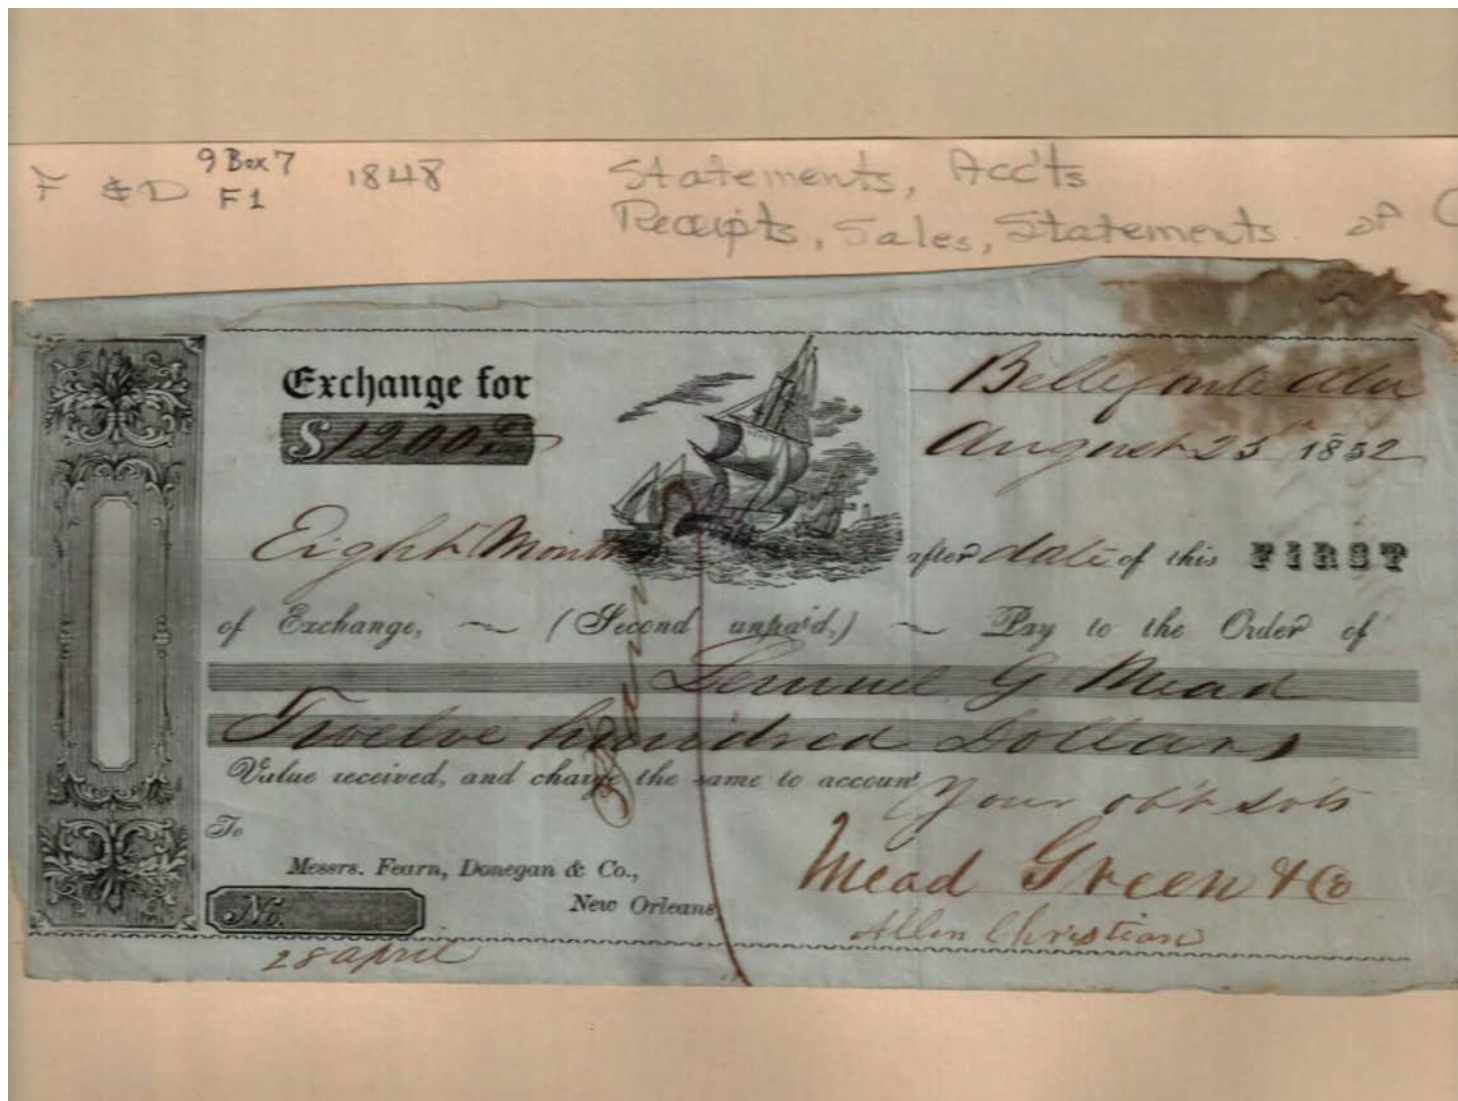 F & D 9 Box 7 1848 Statements, Acc'ts
F1 Receipts, Sales, Statements of C
Exchange for
Bellefonte Ala
$1200
August 25 1852
Eight Months after date of this FIRST
of Exchange, (Second unpaid,) Pay to the Order of
Lemuel G Mead
Twelve hundred Dollars
Value received, and charge the same to account
Your obt svts
To
Mead Green & Co
Messrs. Fearn, Donegan & Co.,
No.
New Orleans,
Allen Christian
28 april